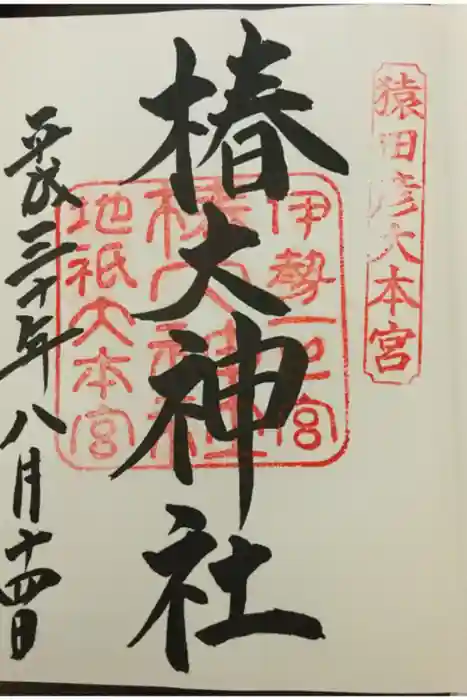 猿田彦大本宮
椿大神社
伊勢一之宮
椿大神社
地祇大本宮
平成三十年八月十四日